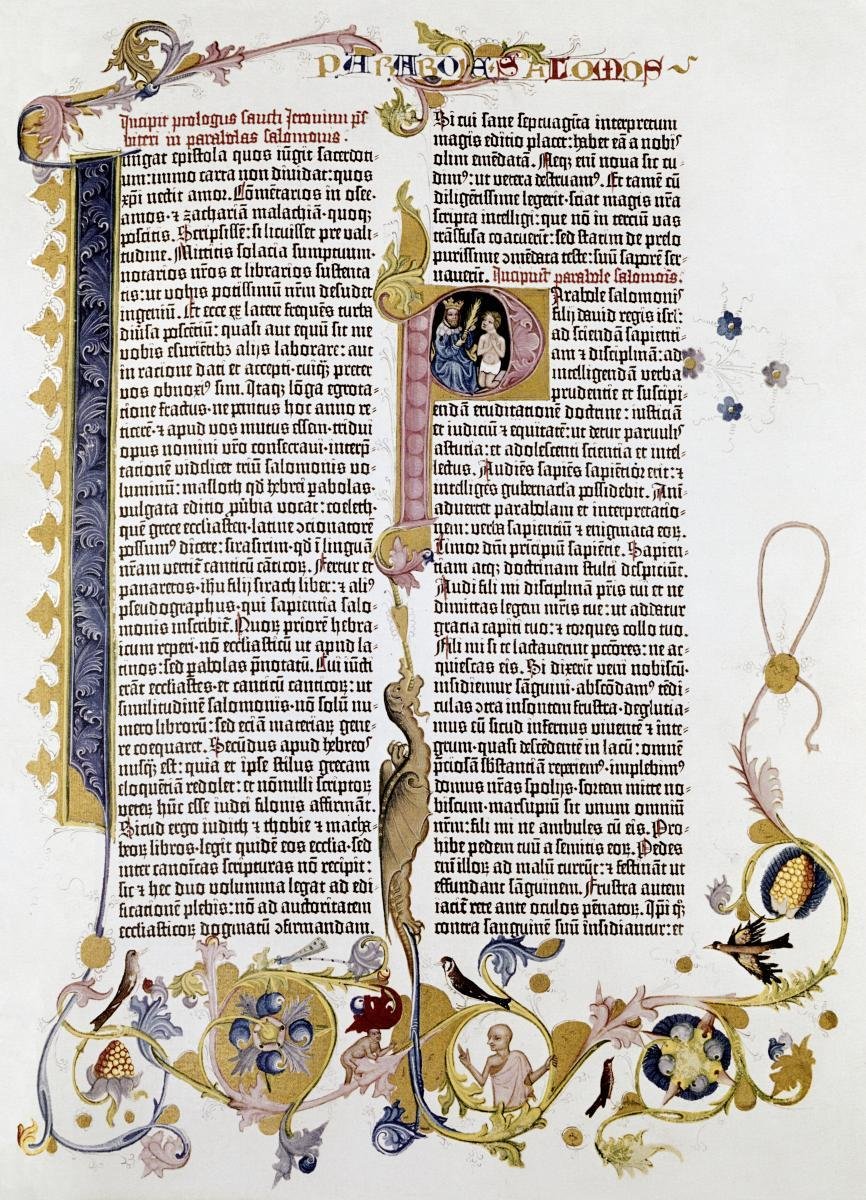 PARABOLE SALOMONIS
Incipit prologus sancti Jeronimi p̄s-
biteri in parabolas salomonis.
Iungat epistola quos iūgit sacerdoti-
um: immo carta non diuidat: quos
xp̄i nectit amor. Cōmētarios in osee.
amos. ⁊ zachariam malachiam. quoq;
poscitis. Scripsissē: si licuisset pre vali-
tudine. Mittitis solacia sumptuum.
notarios nr̄os et librarios sustenta-
tis: ut vobis potissimū nr̄m desudet
ingeniū. Et ecce ex latere frequēs turba
diūsa poscētiū: quasi aut equū sit me
vobis esurientibꝫ alijs laborare: aut
in ratione dati et accepti. cuiq; preter
vos obnoxi⁹ sim. Itaq; lōga egrota-
tione fractus. ne penitus hoc anno re-
ticerē ⁊ apud vos mutus essem. tridui
opus nomini vr̄o consecraui. interp̄-
tationē videlicet triū salomonis vo-
luminū: masloth qd̄ hebrei p̄abolas.
vulgata editio p̄ubia vocat: coeleth.
quē grece ecclīasten. latine ↄcionatorē
possum⁹ dicere: sirasirim. qd̄ ī linguā
nr̄am vertit̄ canticū cāticoꝝ. Fertur et
panaretos. ih̄u filij sirach liber: ⁊ ali⁹
pseudographus. qui sapientia salo-
monis inscribit̄. Quoꝝ priorē hebra-
icum reperi. nō ecclīasticū ut apud la-
tinos: sed p̄abolas p̄notatū. Cui iūcti
erāt ecclīastes. et canticū canticoꝝ: ut
similitudinē salomonis. nō solū nu-
mero librorū: sed eciā materiaꝝ gene-
re coequaret. Secūdus apud hebreos
nusq̄ est: quia et ipse stilus grecam
eloquētiā redolet: et nōnulli scriptoꝝ
veteꝝ hūc esse iudei filonis affirmāt.
Sicud ergo iudith ⁊ thobie ⁊ macha-
beoꝝ libros. legit quidē eos ecclīa. sed
inter canoīcas scripturas nō recipit:
sic ⁊ hec duo volumina legat ad edi-
ficationē plebis: nō ad auctoritatem
ecclīasticoꝝ dogmatū ↄfirmandam.
Si cui sane septuagīta interpretum
magis editio placet: habet eā a nobis
olim emēdatā. Neq; enī noua sic cu-
dim⁹: ut vetera destruam⁹. Et tamē cū
diligētissime legerit. sciat magis nr̄a
scripta intelligi: que nō in terciū vas
trāsfusa coacuerīt: sed statim de prelo
purissime ↄmēdata teste: suū saporē ser-
uauerīt. Incipiūt parabole salomonis.
Parabole salomonis
filij dauid regis isrl̄:
ad sciendā sapienti-
am ⁊ disciplinā: ad
intelligendā verba
prudentie et suscipi-
endā eruditationē doctrine: iusticiā
et iudiciū ⁊ equitatē: ut detur paruulis
astutia: et adolescenti scientia et intel-
lectus. Audiēs sapiēs sapiētior erit: ⁊
intelligēs gubernacl̄a possidebit. Ani-
aduertet parabolam et interpretatio-
nem: verba sapientiū ⁊ enigmata eoꝝ.
Timor dn̄i principiū sapiētie. Sapien-
tiam atq; doctrinam stulti despiciūt.
Audi fili mi disciplinā pr̄is tui et ne
dimittas legem mr̄is tue: ut addatur
gracia capiti tuo: ⁊ torques collo tuo.
Fili mi si te lactauerint pctōres: ne ac-
quiescas eis. Si dixerīt veni nobiscū.
insidiemur sāguini. abscōdam⁹ tēdi-
culas ↄtra insontem frustra. deglutia-
mus eū sicud infernus viuentē ⁊ inte-
grum. quasi descēdentē in lacū: omnē
p̄ciosā sb̄stanciā reperiem⁹. implebim⁹
domus nr̄as spolijs. sortem mitte no-
biscum. marsupiū sit unum omniū
nr̄m: fili mi ne ambules cū eis. Pro-
hibe pedem tuū a semitis eoꝝ. Pedes
enī illoꝝ ad malū currūt: ⁊ festināt ut
effundant sāguinem. Frustra autem
iacit̄ rete ante oculos pēnatoꝝ. Ipi q;
contra sanguinē suū insidiantur: et